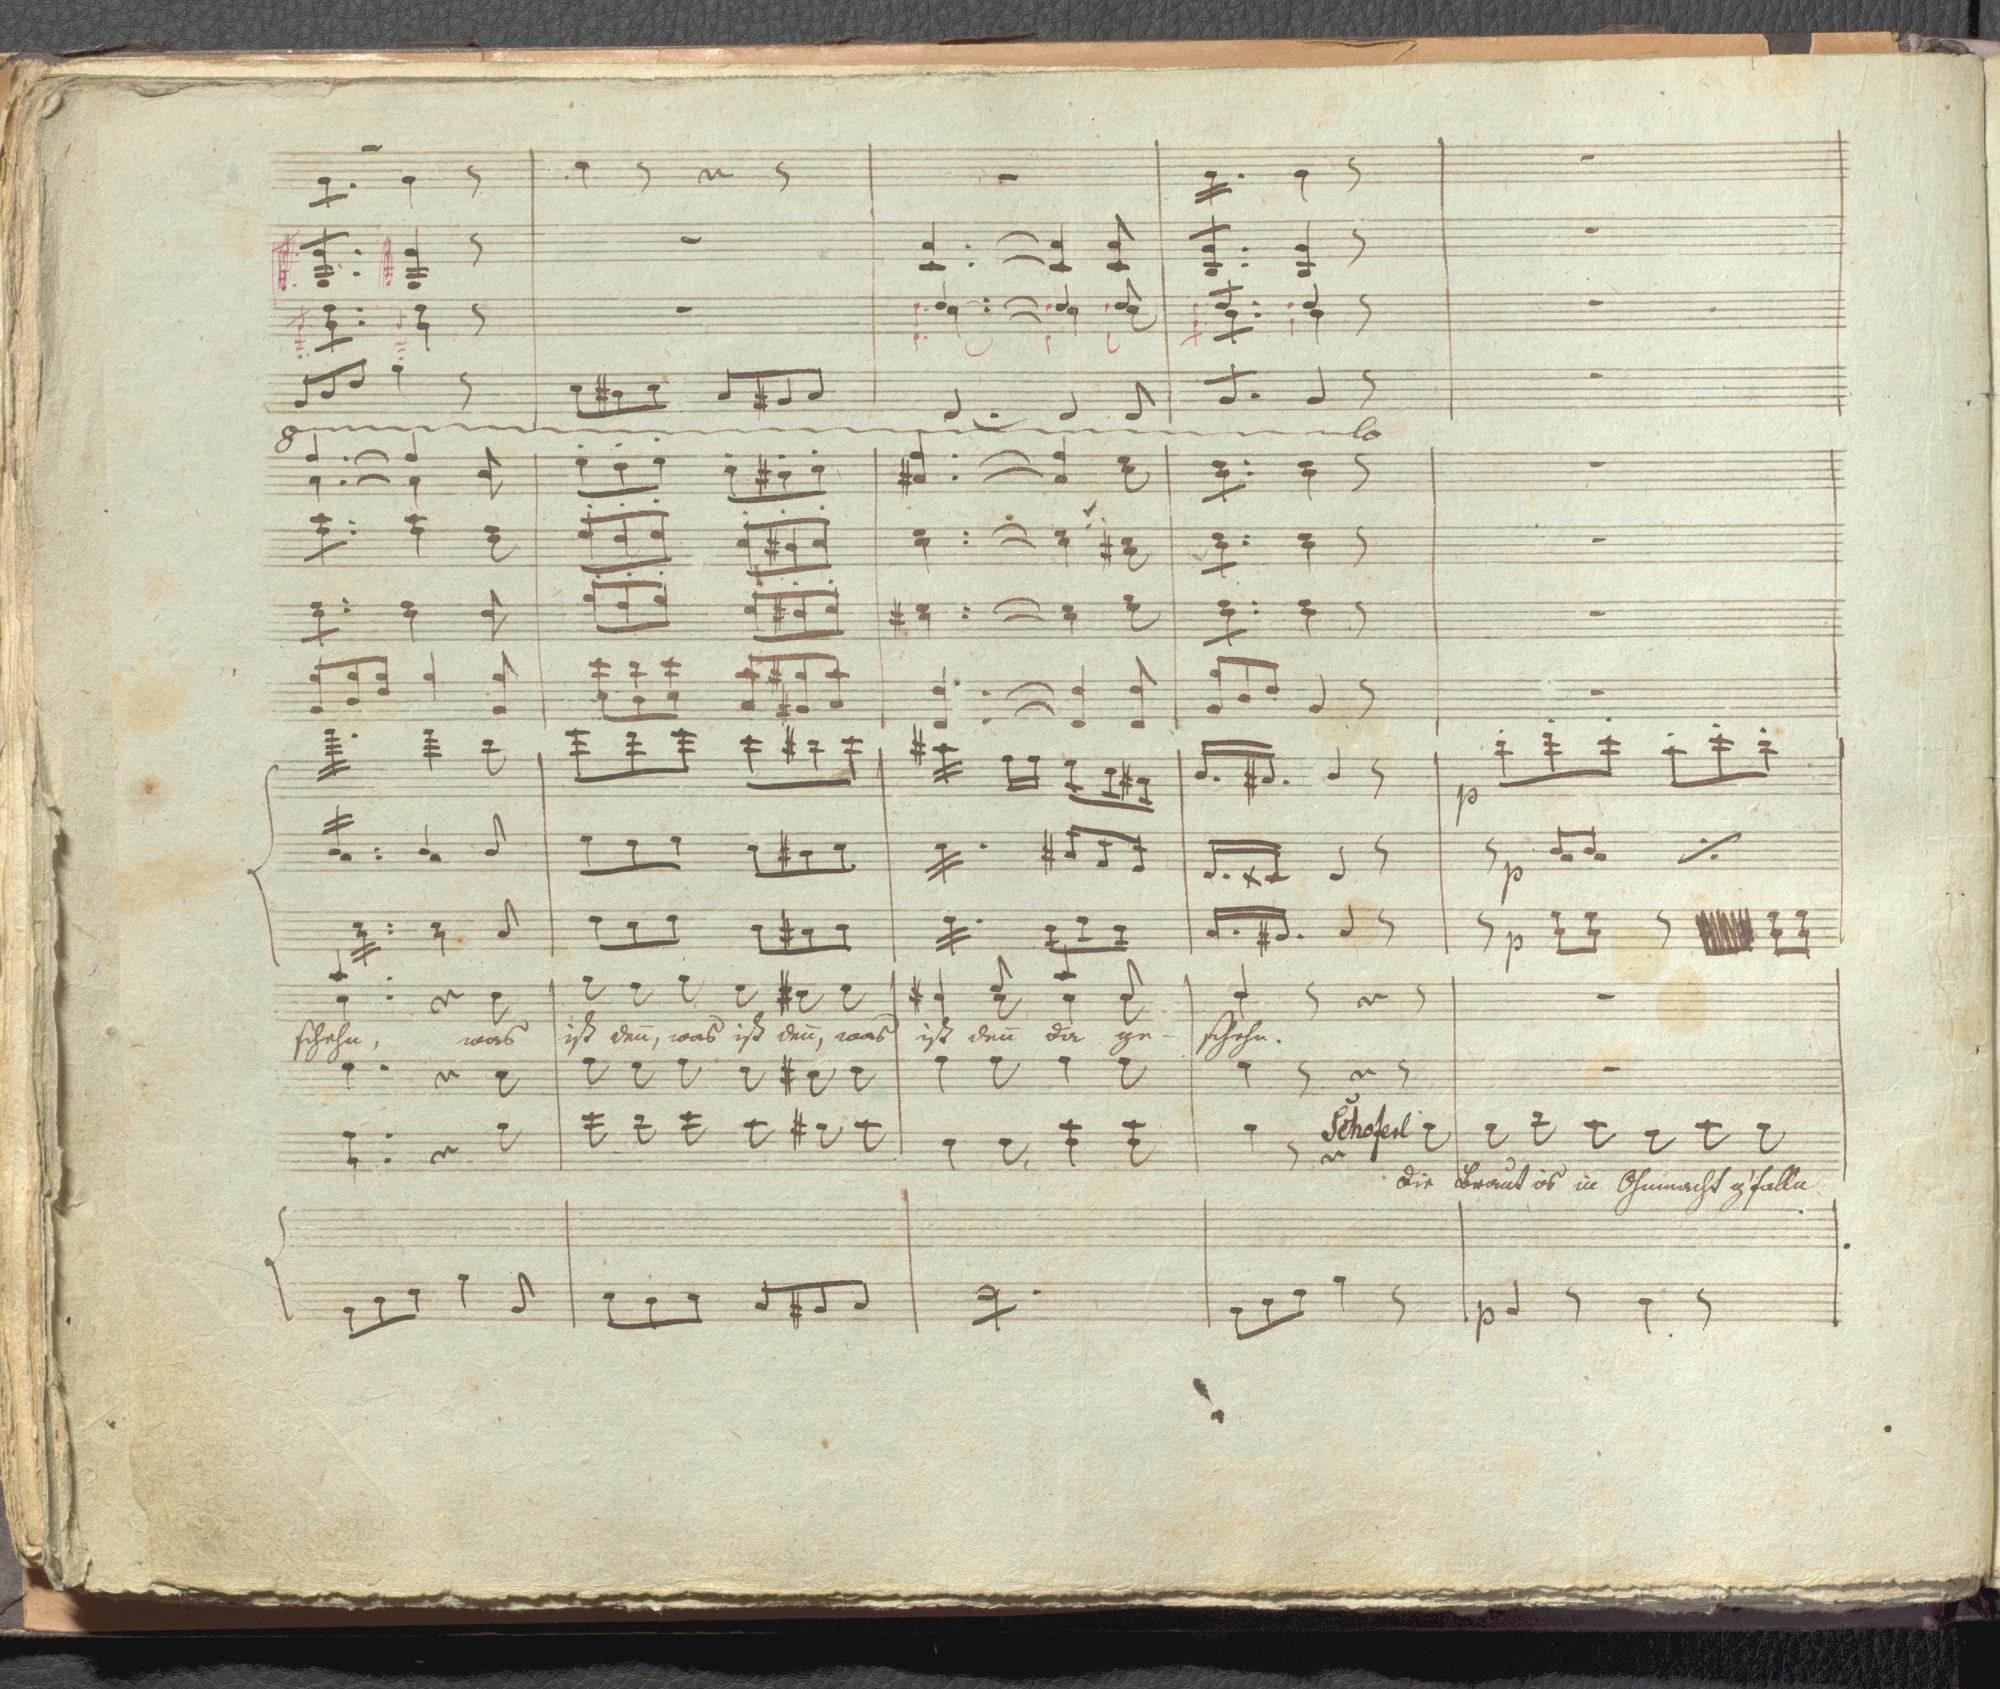 8 lo
p
p
p
schehn, was ist deñ, was ist deñ, was ist deñ da ge- schehn.
Schoferl
die Braut is in Ohnmacht g'falln
p